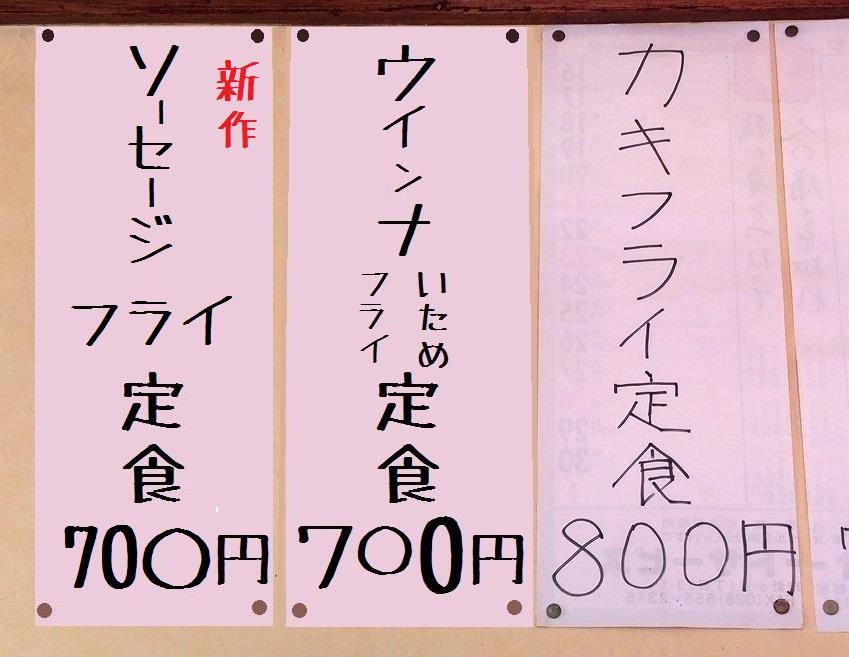 カキフライ定食
800円
ウインナ
いため
フライ
定食
700円
新作
ソーセージ
フライ
定食
700円